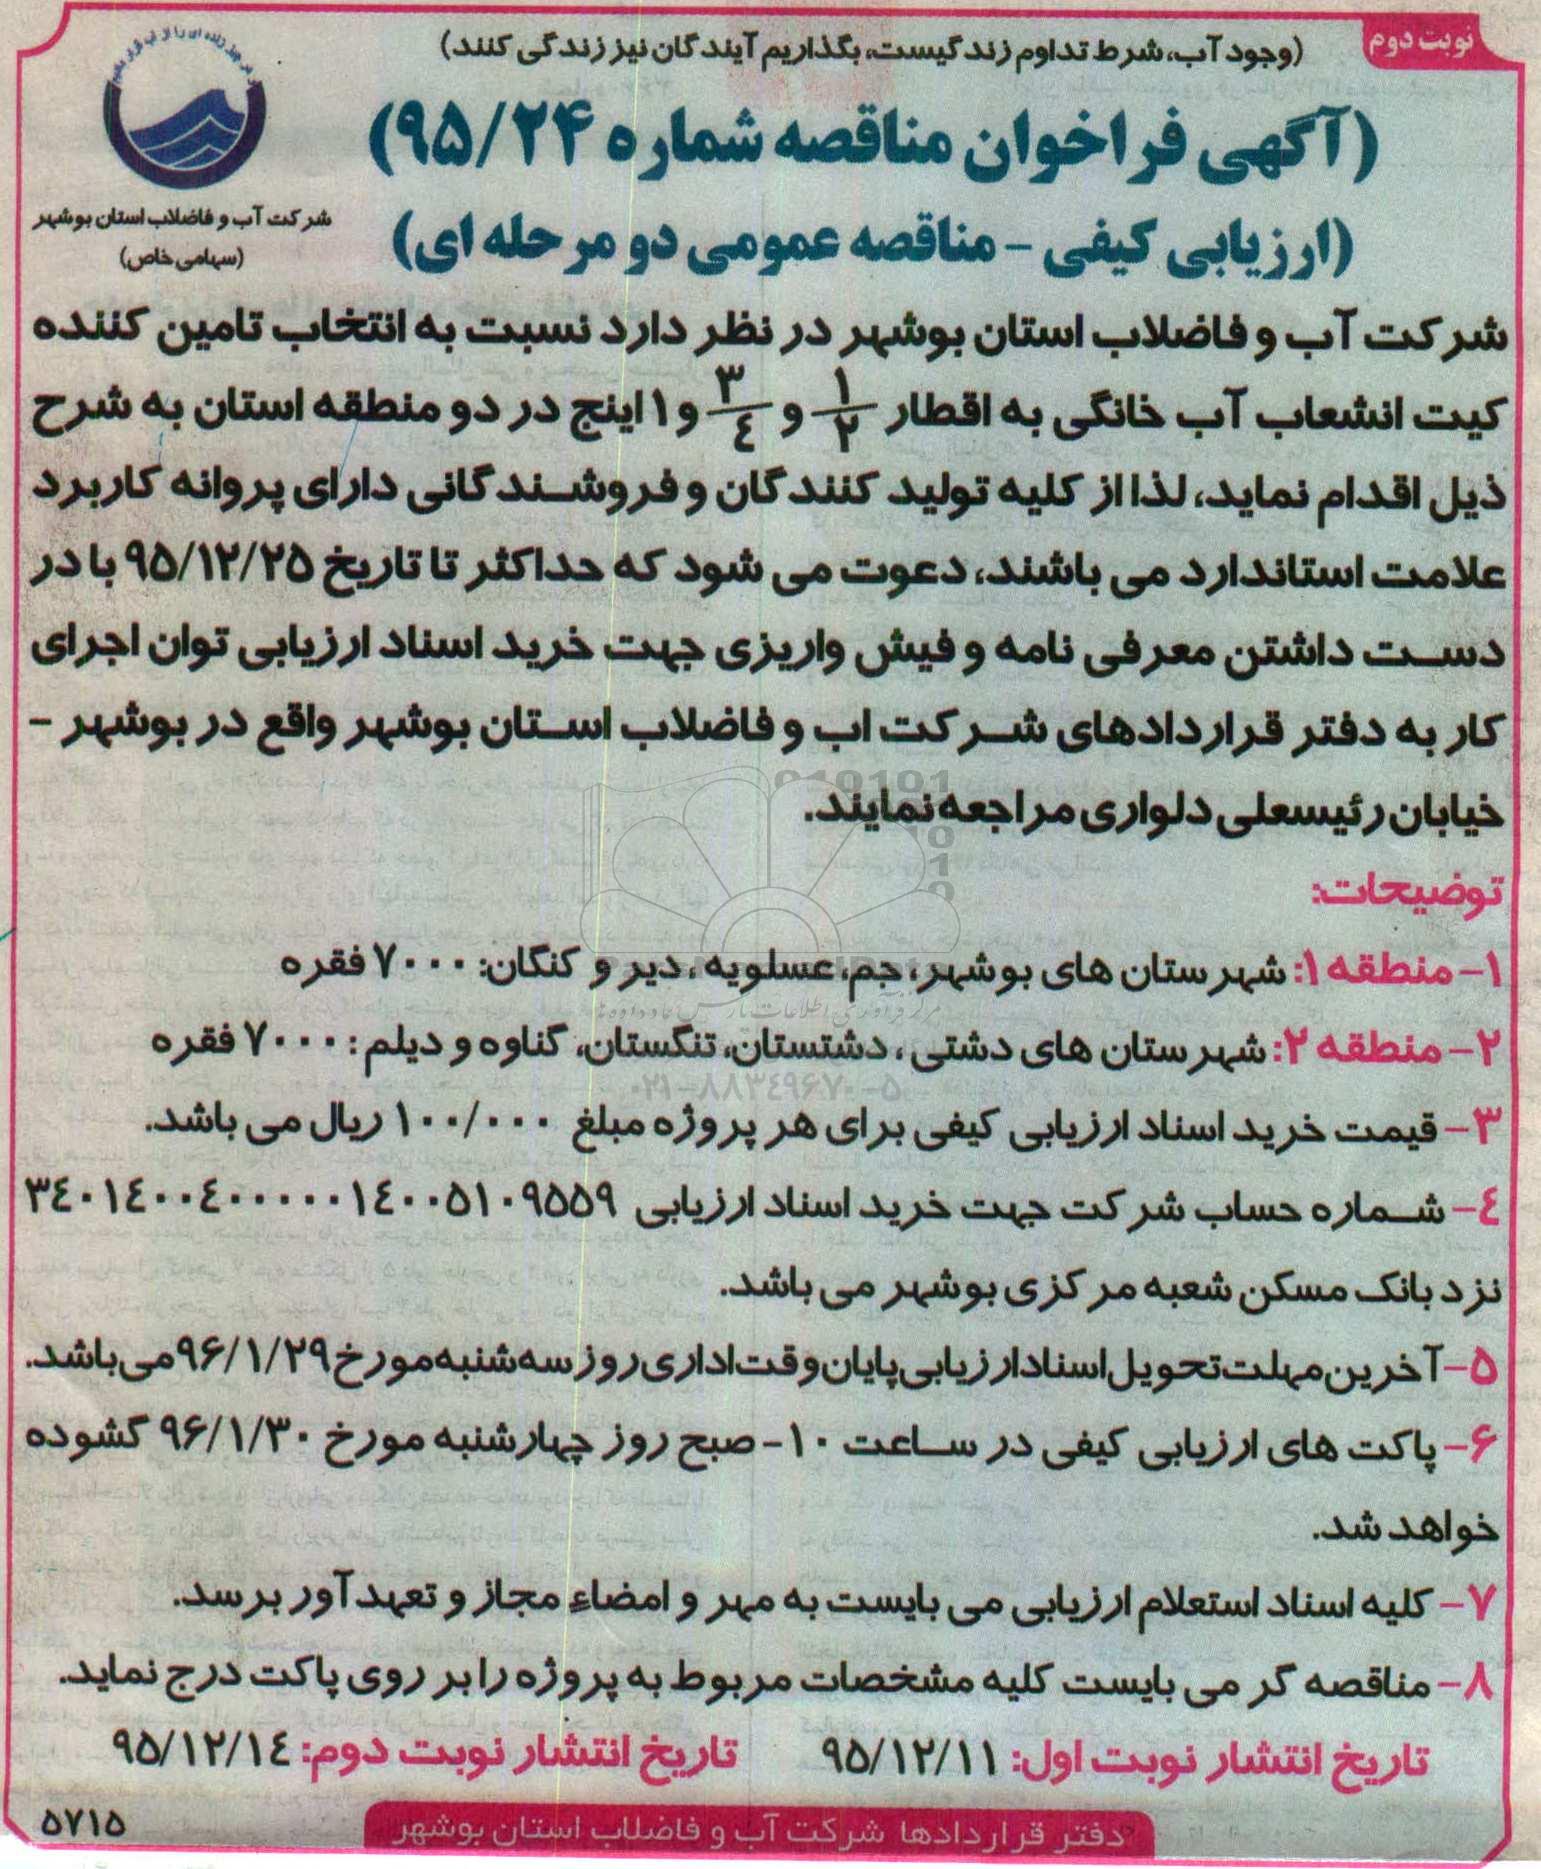 نوبت دوم
(وجود آب، شرط تداوم زندگیست، بگذاریم آیندگان نیز زندگی کنند)
(آگهی فراخوان مناقصه شماره ۹۵/۲۴)
(ارزیابی کیفی - مناقصه عمومی دو مرحله ای)
شرکت آب و فاضلاب استان بوشهر
(سهامی خاص)
شرکت آب و فاضلاب استان بوشهر در نظر دارد نسبت به انتخاب تامین کننده
کیت انشعاب آب خانگی به اقطار ۱/۲ و ۳/۴ و ۱ اینچ در دو منطقه استان به شرح
ذیل اقدام نماید، لذا از کلیه تولید کنندگان و فروشندگانی دارای پروانه کاربرد
علامت استاندارد می باشند، دعوت می شود که حداکثر تا تاریخ ۹۵/۱۲/۲۵ با در
دست داشتن معرفی نامه و فیش واریزی جهت خرید اسناد ارزیابی توان اجرای
کار به دفتر قراردادهای شرکت اب و فاضلاب استان بوشهر واقع در بوشهر -
خیابان رئیسعلی دلواری مراجعه نمایند.
توضیحات:
۱- منطقه ۱: شهرستان های بوشهر، جم، عسلویه، دیر و کنگان: ۷۰۰۰ فقره
۲- منطقه ۲: شهرستان های دشتی، دشتستان، تنگستان، گناوه و دیلم: ۷۰۰۰ فقره
۰۲۱-۸۸۳۴۹۶۷۰-۵
۳- قیمت خرید اسناد ارزیابی کیفی برای هر پروژه مبلغ ۱۰۰/۰۰۰ ریال می باشد.
۴- شماره حساب شرکت جهت خرید اسناد ارزیابی ۳۴۰۱۴۰۰۴۰۰۰۰۰۱۴۰۰۵۱۰۹۵۵۹
نزد بانک مسکن شعبه مرکزی بوشهر می باشد.
۵- آخرین مهلت تحویل اسناد ارزیابی پایان وقت اداری روز سه شنبه مورخ ۹۶/۱/۲۹ می باشد.
۶- پاکت های ارزیابی کیفی در ساعت ۱۰- صبح روز چهارشنبه مورخ ۹۶/۱/۳۰ گشوده
خواهد شد.
۷- کلیه اسناد استعلام ارزیابی می بایست به مهر و امضاء مجاز و تعهدآور برسد.
۸- مناقصه گر می بایست کلیه مشخصات مربوط به پروژه را بر روی پاکت درج نماید.
تاریخ انتشار نوبت اول: ۹۵/۱۲/۱۱ تاریخ انتشار نوبت دوم: ۹۵/۱۲/۱۴
دفتر قراردادها شرکت آب و فاضلاب استان بوشهر
۵۷۱۵